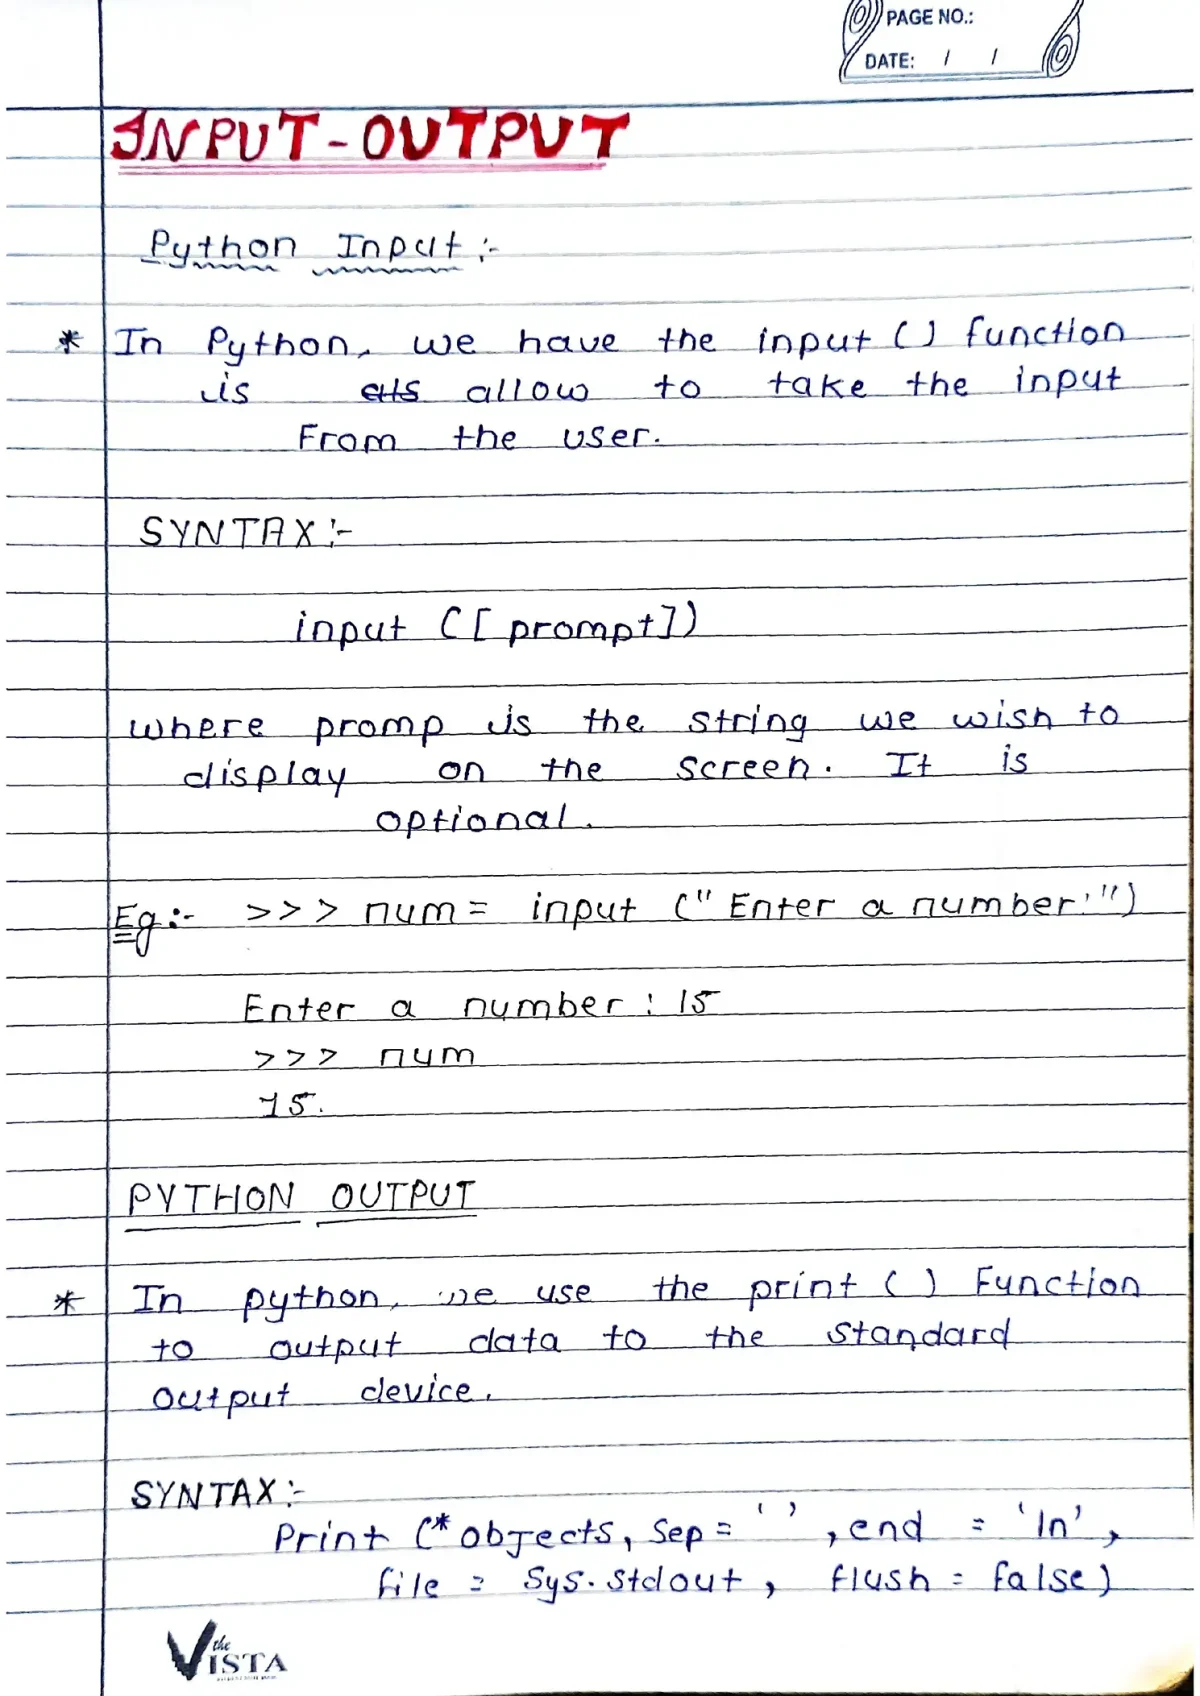 PAGE NO.:
DATE: / /
INPUT-OUTPUT
Python Input :-
* In Python, we have the input () function
is allow to take the input
From the user.
SYNTAX :-
input ([prompt])
where promp is the string we wish to
display on the screen. It is
optional.
Eg :- >>> num = input ("Enter a number:")
Enter a number : 15
>>> num
15.
PYTHON OUTPUT
* In python, we use the print () Function
to output data to the standard
output device.
SYNTAX :-
Print (* objects, Sep = ' ' , end = 'In' ,
file = Sys. Stdout , flush = false)
the VISTA